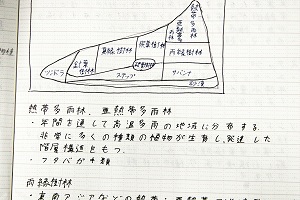 熱帯多雨林
亜熱帯多雨林
照葉樹林
夏緑樹林
針葉樹林
雨緑樹林
硬葉樹林
ツンドラ
ステップ
サバンナ
砂漠
熱帯多雨林、亜熱帯多雨林
・年間を通して高温多雨の地域に分布する。
非常に多くの種類の植物が生育し、発達した
階層構造をもつ。
・フタバガキ類
雨緑樹林
・東南アジアなどの熱帯・亜熱帯